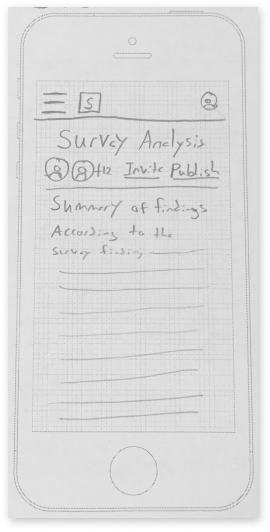 S
Survey Analysis
+12 Invite Publish
Summary of findings
According to the
survey finding